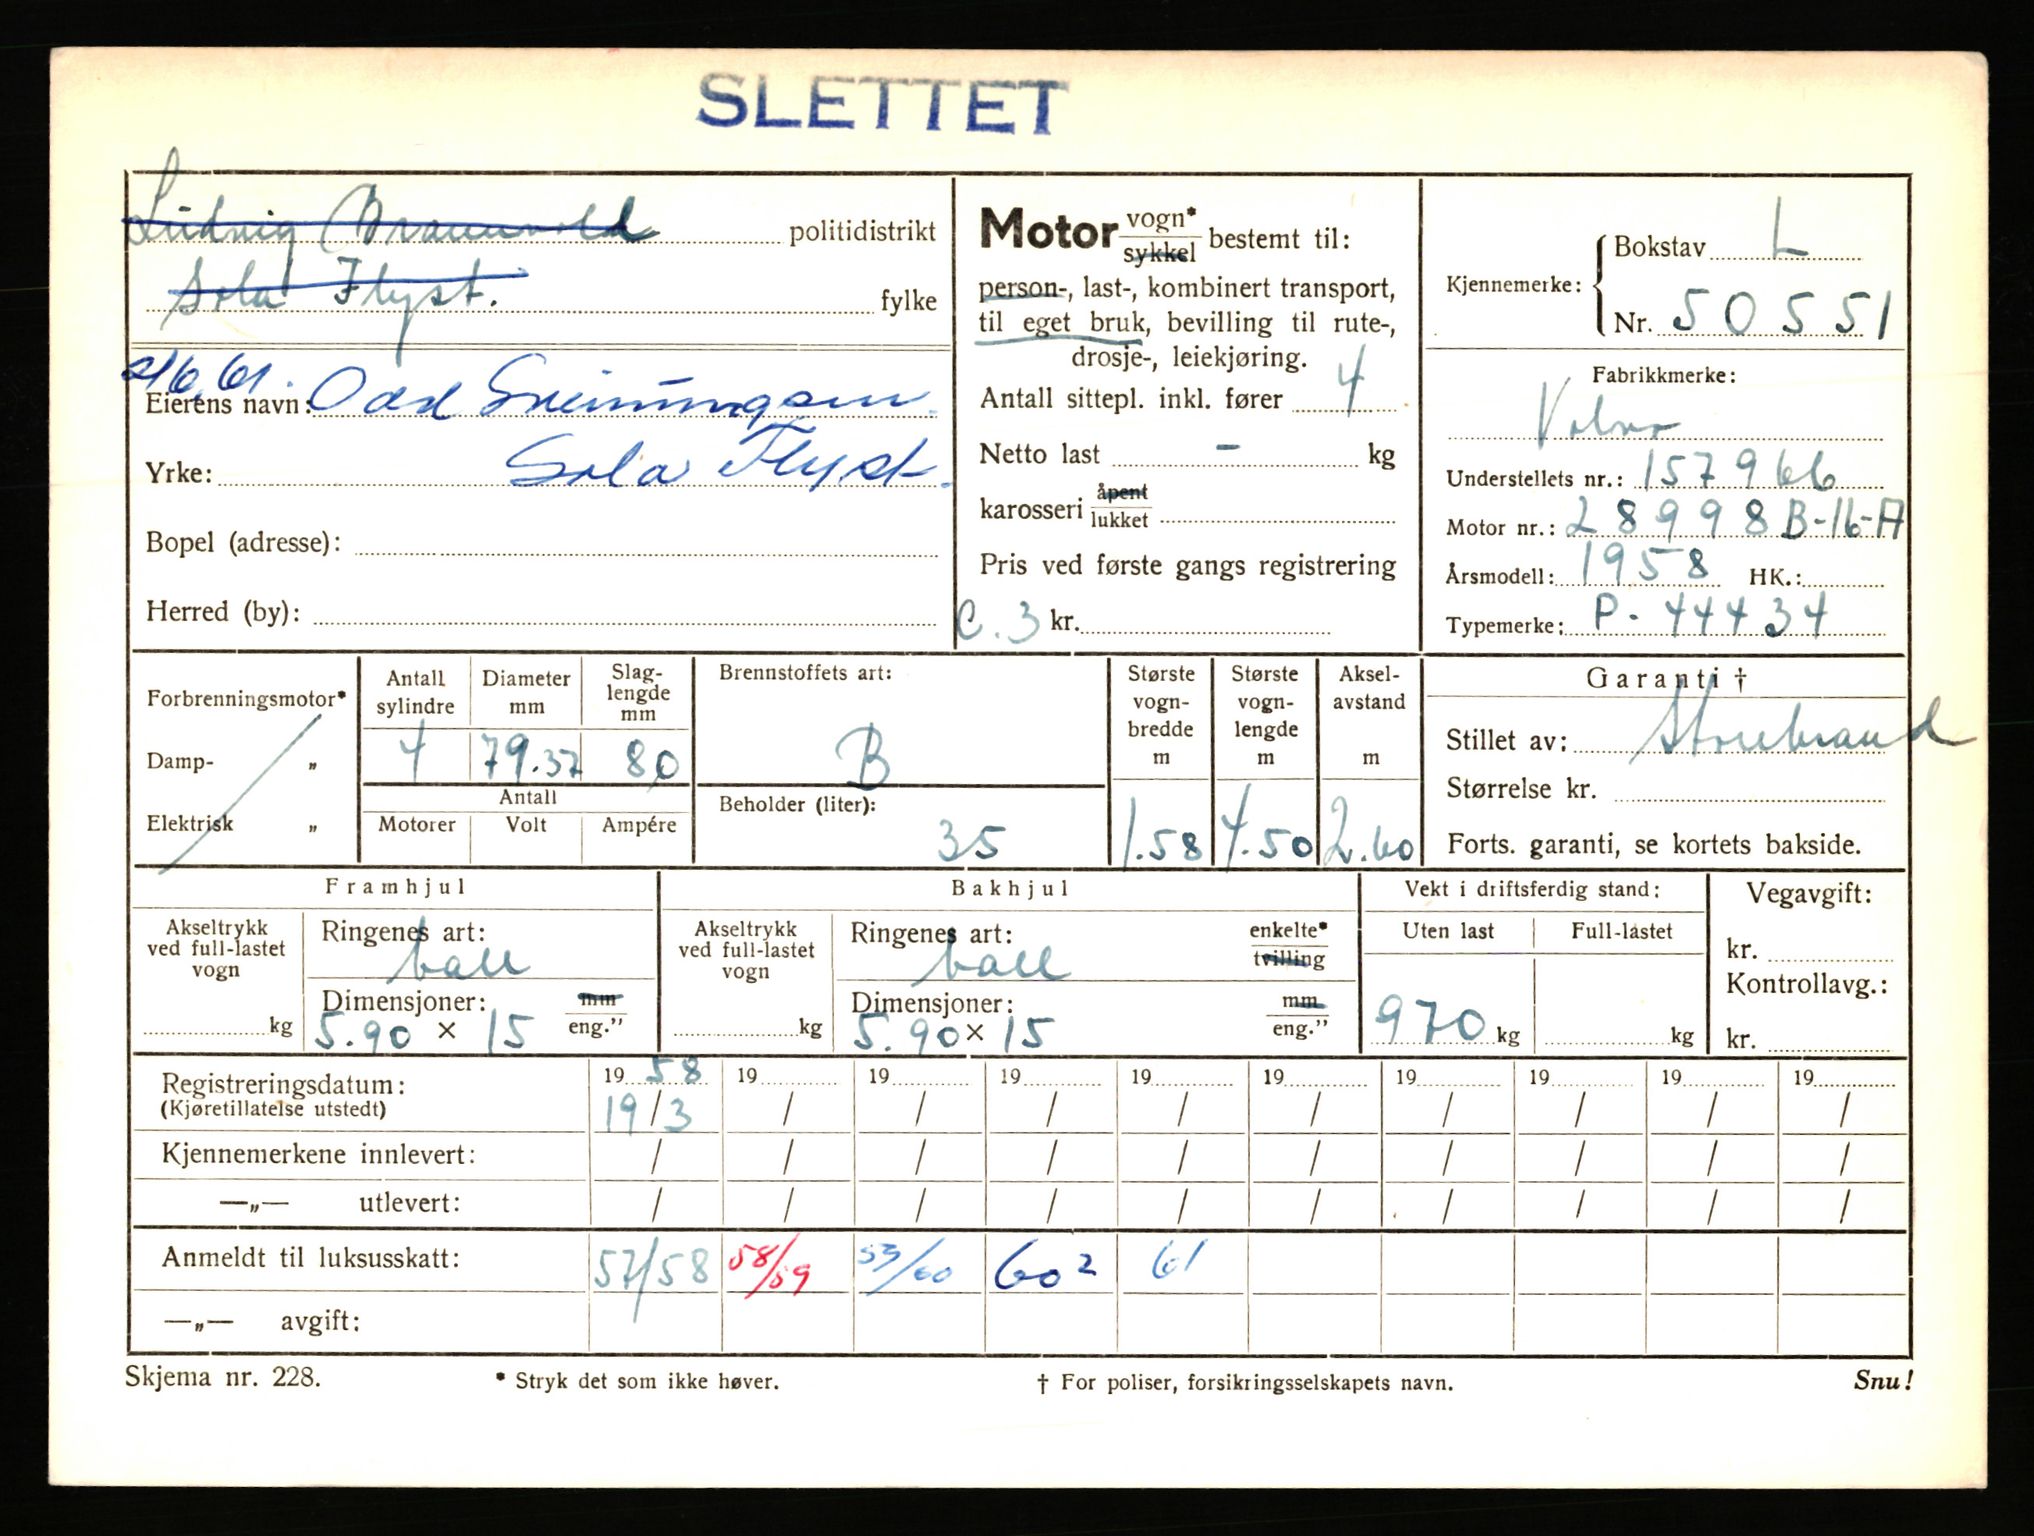 SLETTET
Ludvig politidistrikt
Sola Flyst. fylke
Eierens navn: Odd
Yrke: Sola Flyst.
Bopel (adresse):
Herred (by):
Motor vogn* sykkel bestemt til:
person-, last-, kombinert transport,
til eget bruk, bevilling til rute-,
drosje-, leiekjøring.
Antall sittepl. inkl. fører 4
Netto last - kg
karosseri åpent lukket
Pris ved første gangs registrering
C. 3 kr.
Kjennemerke: { Bokstav L
Nr. 50551
Fabrikkmerke:
Volvo
Understellets nr.: 157966
Motor nr.: 28998 B-16-A
Årsmodell: 1958 HK.:
Typemerke: P. 44434
Forbrenningsmotor*
Damp- „
Elektrisk „
Antall sylindre
Diameter mm
Slag-lengde mm
4 79.37 80
Antall
Motorer Volt Ampére
Brennstoffets art:
B
Beholder (liter):
35
Største vogn-bredde m
1.58
Største vogn-lengde m
4.50
Aksel-avstand m
2.60
Garanti †
Stillet av: Storebrand
Størrelse kr.
Forts. garanti, se kortets bakside.
Framhjul
Akseltrykk ved full-lastet vogn
kg
Ringenes art:
ball
Dimensjoner: mm eng.”
5.90 × 15
Bakhjul
Akseltrykk ved full-lastet vogn
kg
Ringenes art: enkelte* tvilling
ball
Dimensjoner: mm eng.”
5.90 × 15
Vekt i driftsferdig stand:
Uten last Full-lastet
970 kg kg
Vegavgift:
kr.
Kontrollavg.:
kr.
Registreringsdatum: 19 58 19 19 19 19 19 19 19 19 19
(Kjøretillatelse utstedt) 19/3 / / / / / / / / /
Kjennemerkene innlevert: / / / / / / / / / /
—„— utlevert: / / / / / / / / / /
Anmeldt til luksusskatt: 57/58 58/59 59/60 60 2 61
—„— avgift:
Skjema nr. 228. * Stryk det som ikke høver. † For poliser, forsikringsselskapets navn. Snu!